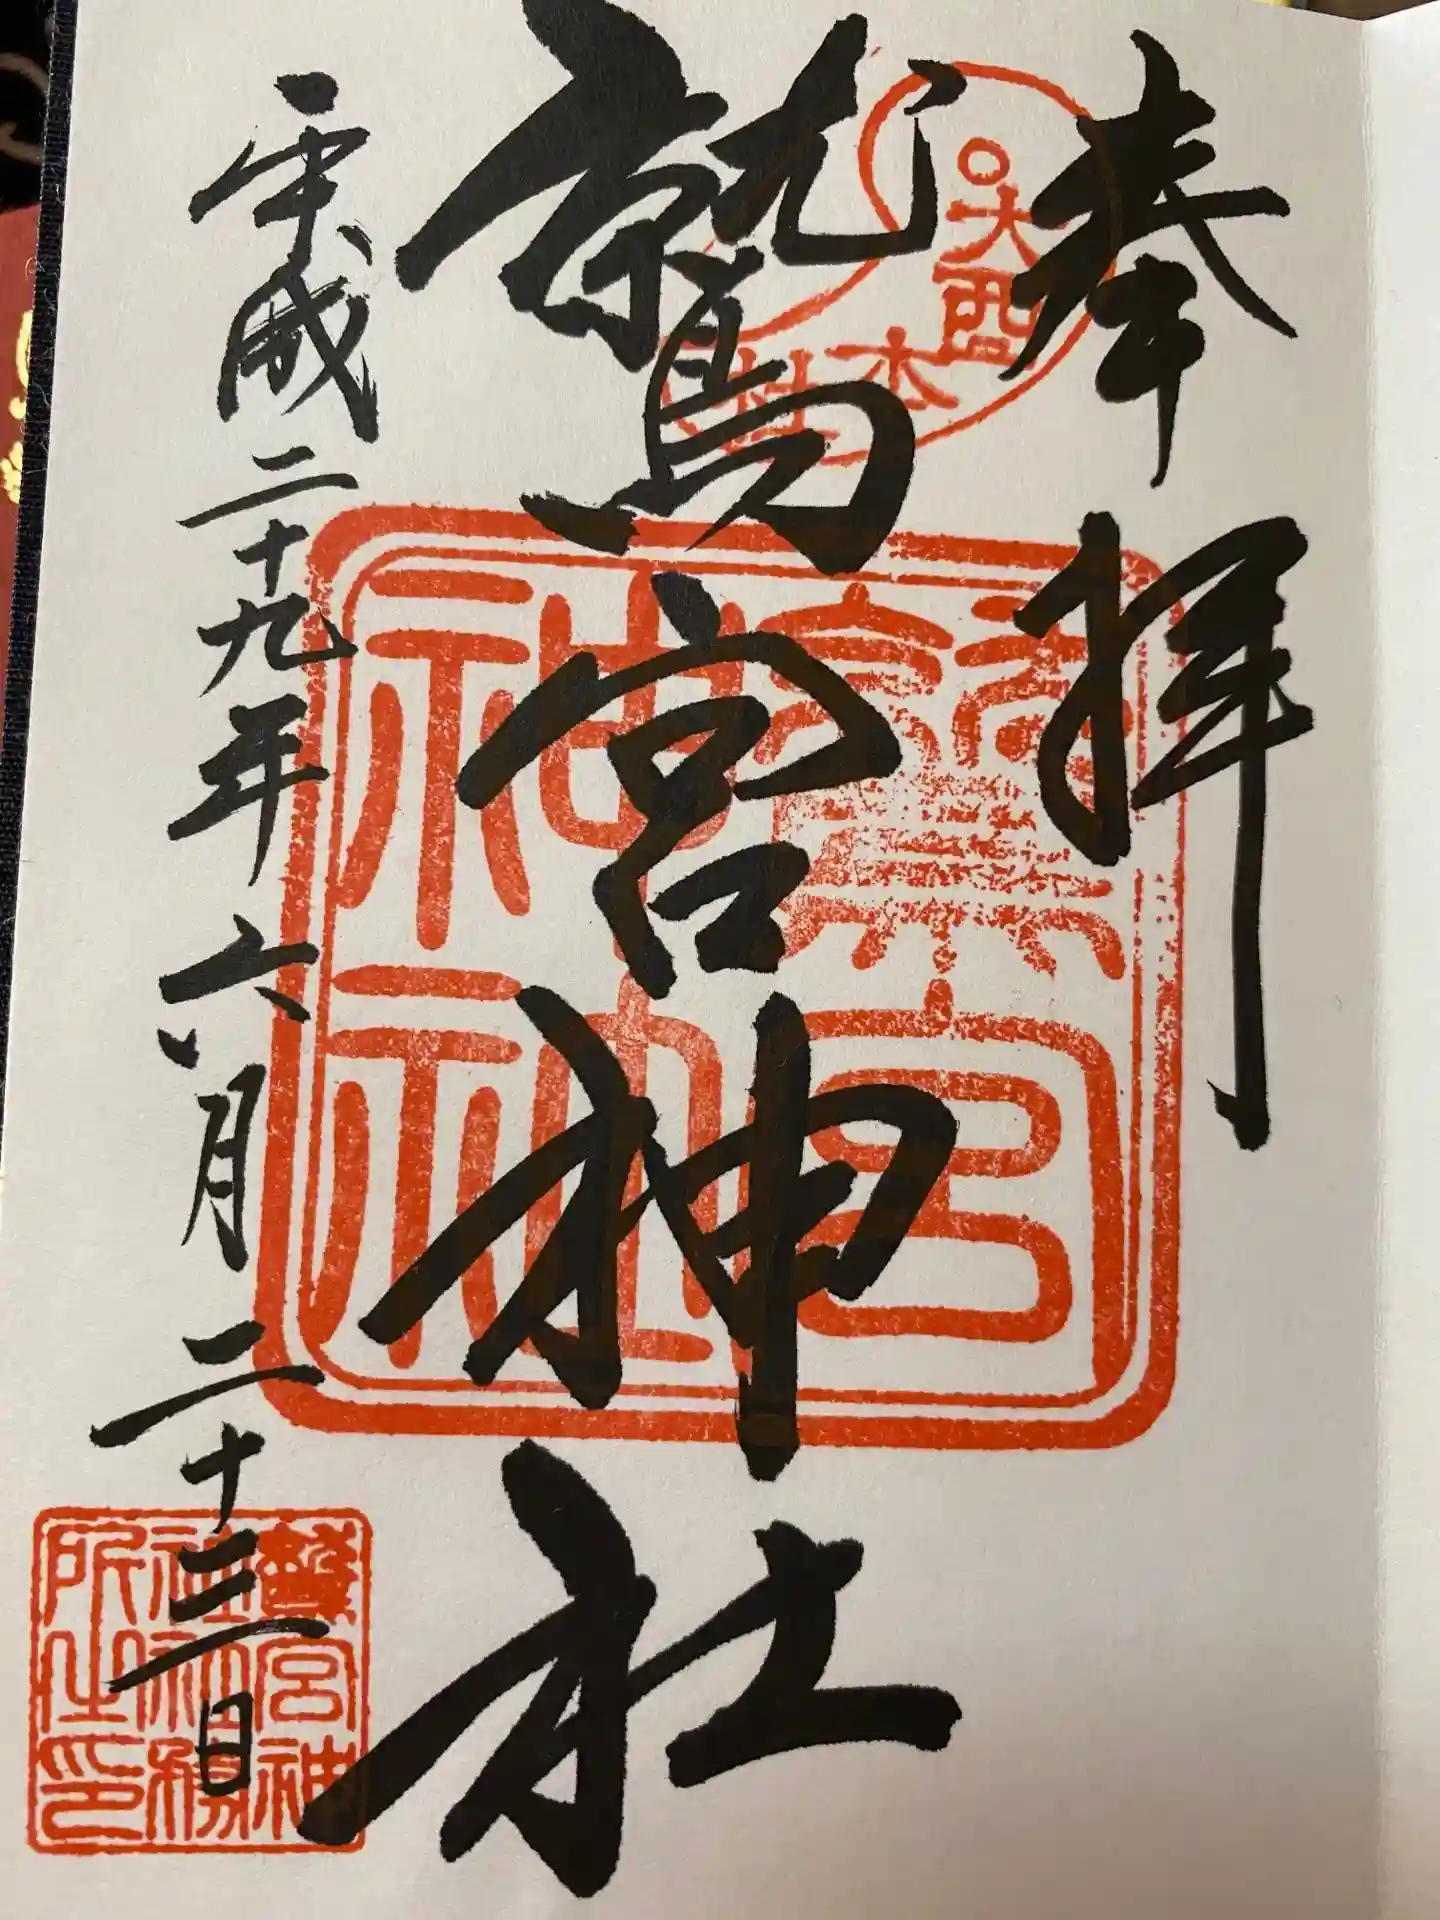 奉拝
大酉本社
鷲宮神社
鷲宮神社
平成二十九年六月二十三日
鷲宮神
社社務
所之印